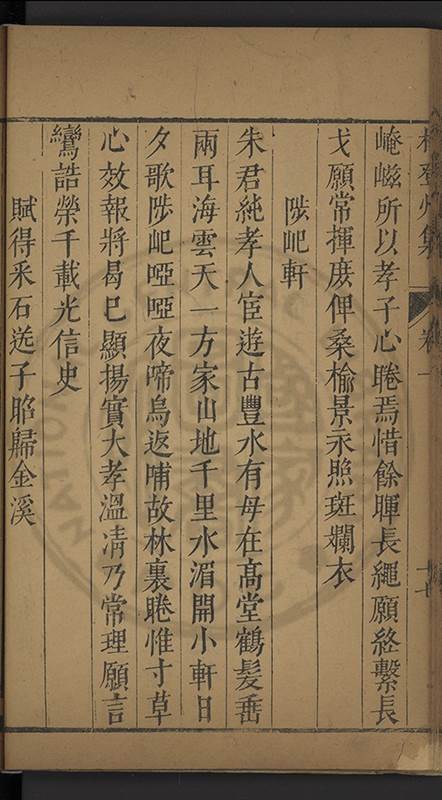 登州集 卷一
崦嵫所以孝子心睠焉惜餘暉長繩願終繫長
戈願常揮庶俾桑榆景永照斑斕衣
陟屺軒
朱君純孝人宦遊古豐水有母在高堂鶴髮垂
兩耳海雲天一方家山地千里水湄開小軒日
夕歌陟屺啞啞夜啼烏返哺故林裏睠惟寸草
心效報將曷已顯揚實大孝溫凊乃常理願言
鸞誥榮千載光信史
賦得采石送子昭歸金溪